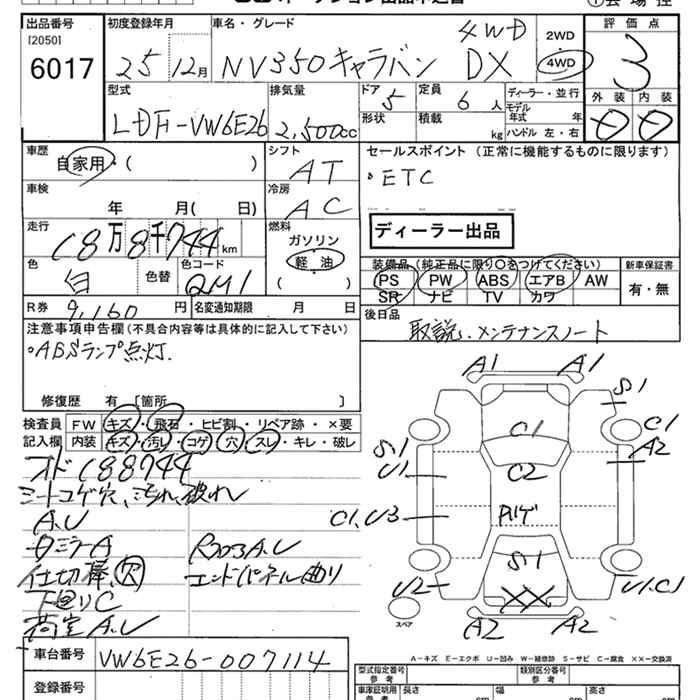 出品番号 初度登録年月 車名・グレード 評価点
[2050]
6017 25年 12月 NV350キャラバン 4WD DX 2WD 4WD 3
外装 内装
型式 排気量 ドア 定員 ディーラー・並行
LDF-VW6E26 2,500cc 5 6人 モデル年式 年
形状 積載 kg ハンドル 左・右
車歴 シフト セールスポイント (正常に機能するものに限ります)
自家用・( ) AT ・ETC
車検 冷房
年 月( 日) AC
ディーラー出品
走行 燃料
18万8千744km ガソリン
軽油
色 色替 色コード 装備品 (純正品に限り○をつけてください) 新車保証書
白 QM1 ( ) PS PW ABS エアB AW 有・無
SR ナビ TV カワ
R券 9,160円 名変通知期限 月 日 後日品
取説、メンテナンスノート
注意事項申告欄(不具合内容等は具体的に記入して下さい)
・ABSランプ点灯.
修復歴 有 [箇所 ]
検査員 FW キズ・飛石・ヒビ割・リペア跡・×要
記入欄 内装 キズ・汚レ・コゲ・穴・スレ・キレ・破レ
オド188744
シートコゲ穴、汚れ、破れ
A.U
ロミラーA R303A.U
仕切棒、穴 エンドパネル曲り
下回りC
荷室A.U
A1 A1
S1
C1 C1
S1 A2
U1 C2
C1.U3
S1
U2 U1.C1
XX
スペア A2 A2
A-キズ E-エクボ U-凹み W-補修跡 S-サビ C-腐食 XX-交換済
車台番号 VW6E26-007114
型式指定番号 参考 類別区分番号 参考
登録番号
車庫証明用 参考 長さ cm 幅 cm 高さ cm